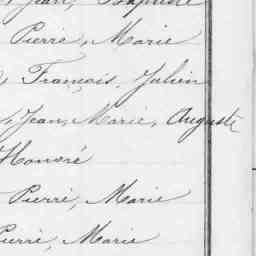 , Jean, Baptiste
Pierre, Marie
, François, Julien
, Jean, Marie, Auguste
Honoré
Pierre, Marie
Pierre, Marie